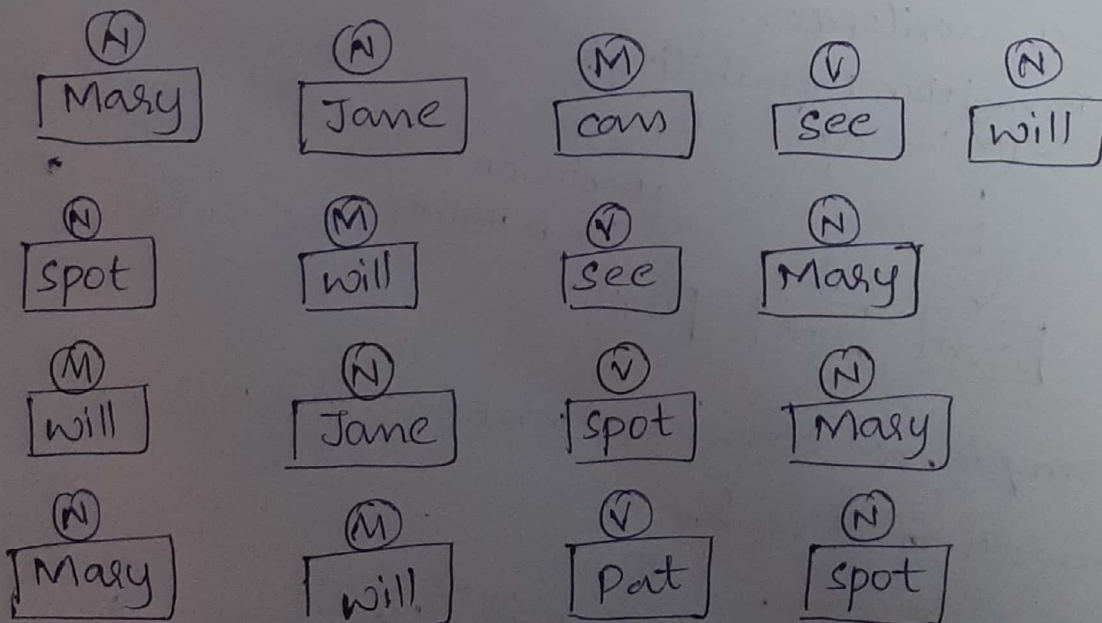 N N M V N
Mary Jane can see will
N M V N
spot will see Mary
M N V N
will Jane spot Mary
N M V N
Mary will Pat spot